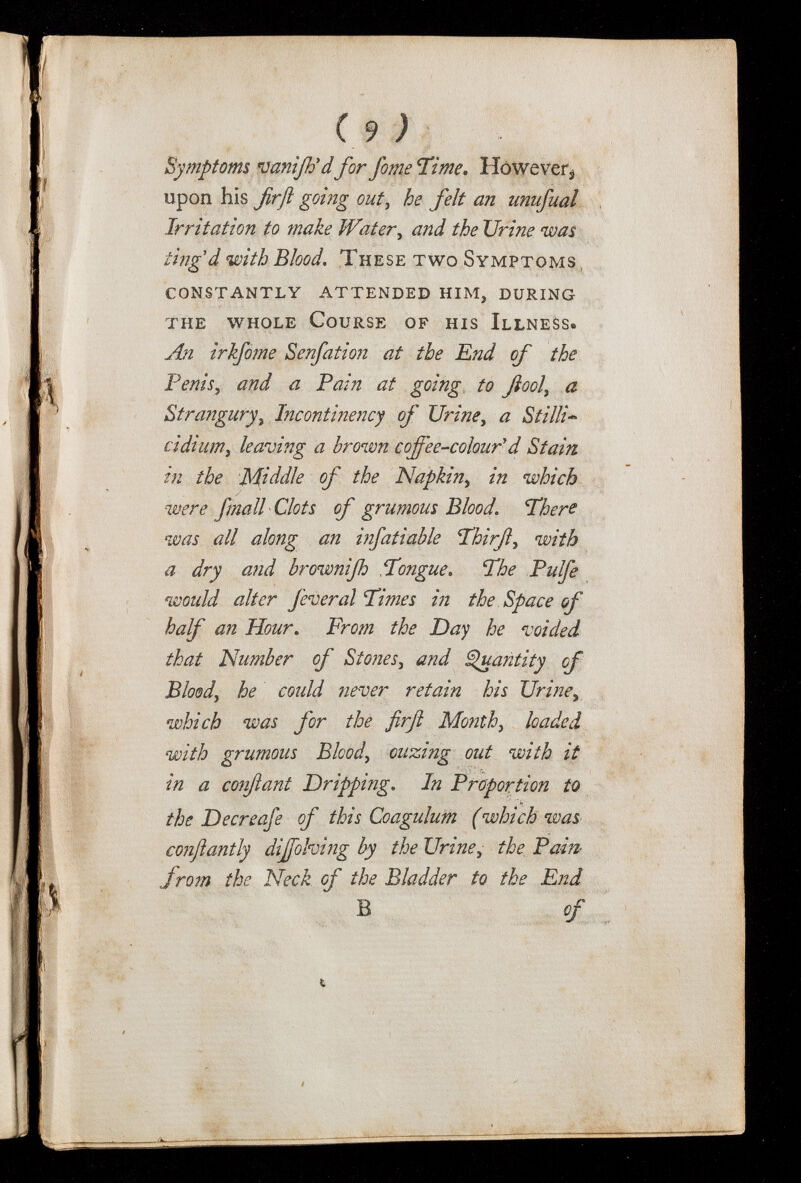 ( 9 )
Symptoms vaniſh'd for ſome Time. However,
upon his firſt going out, he felt an unuſual
Irritation to make Water, and the Urine was
ting'd with Blood. These two Symptoms
constantly attended him, during
the whole Course of his Illness.
An irkſome Senſation at the End of the
Penis, and a Pain at going to ſtool, a
Strangury, Incontinency of Urine, a Stilli-
cidium, leaving a brown coffee-colour'd Stain
in the Middle of the Napkin, in which
were ſmall Clots of grumous Blood. There
was all along an inſatiable Thirſt, with
a dry and browniſh Tongue. The Pulſe
would alter ſeveral Times in the Space of
half an Hour. From the Day he voided
that Number of Stones, and Quantity of
Blood, he could never retain his Urine,
which was for the firſt Month, loaded
with grumous Blood, ouzing out with it
in a conſtant Dripping. In Proportion to
the Decreaſe of this Coagulum (which was
conſtantly diſſolving by the Urine, the Pain
from the Neck of the Bladder to the End
B of